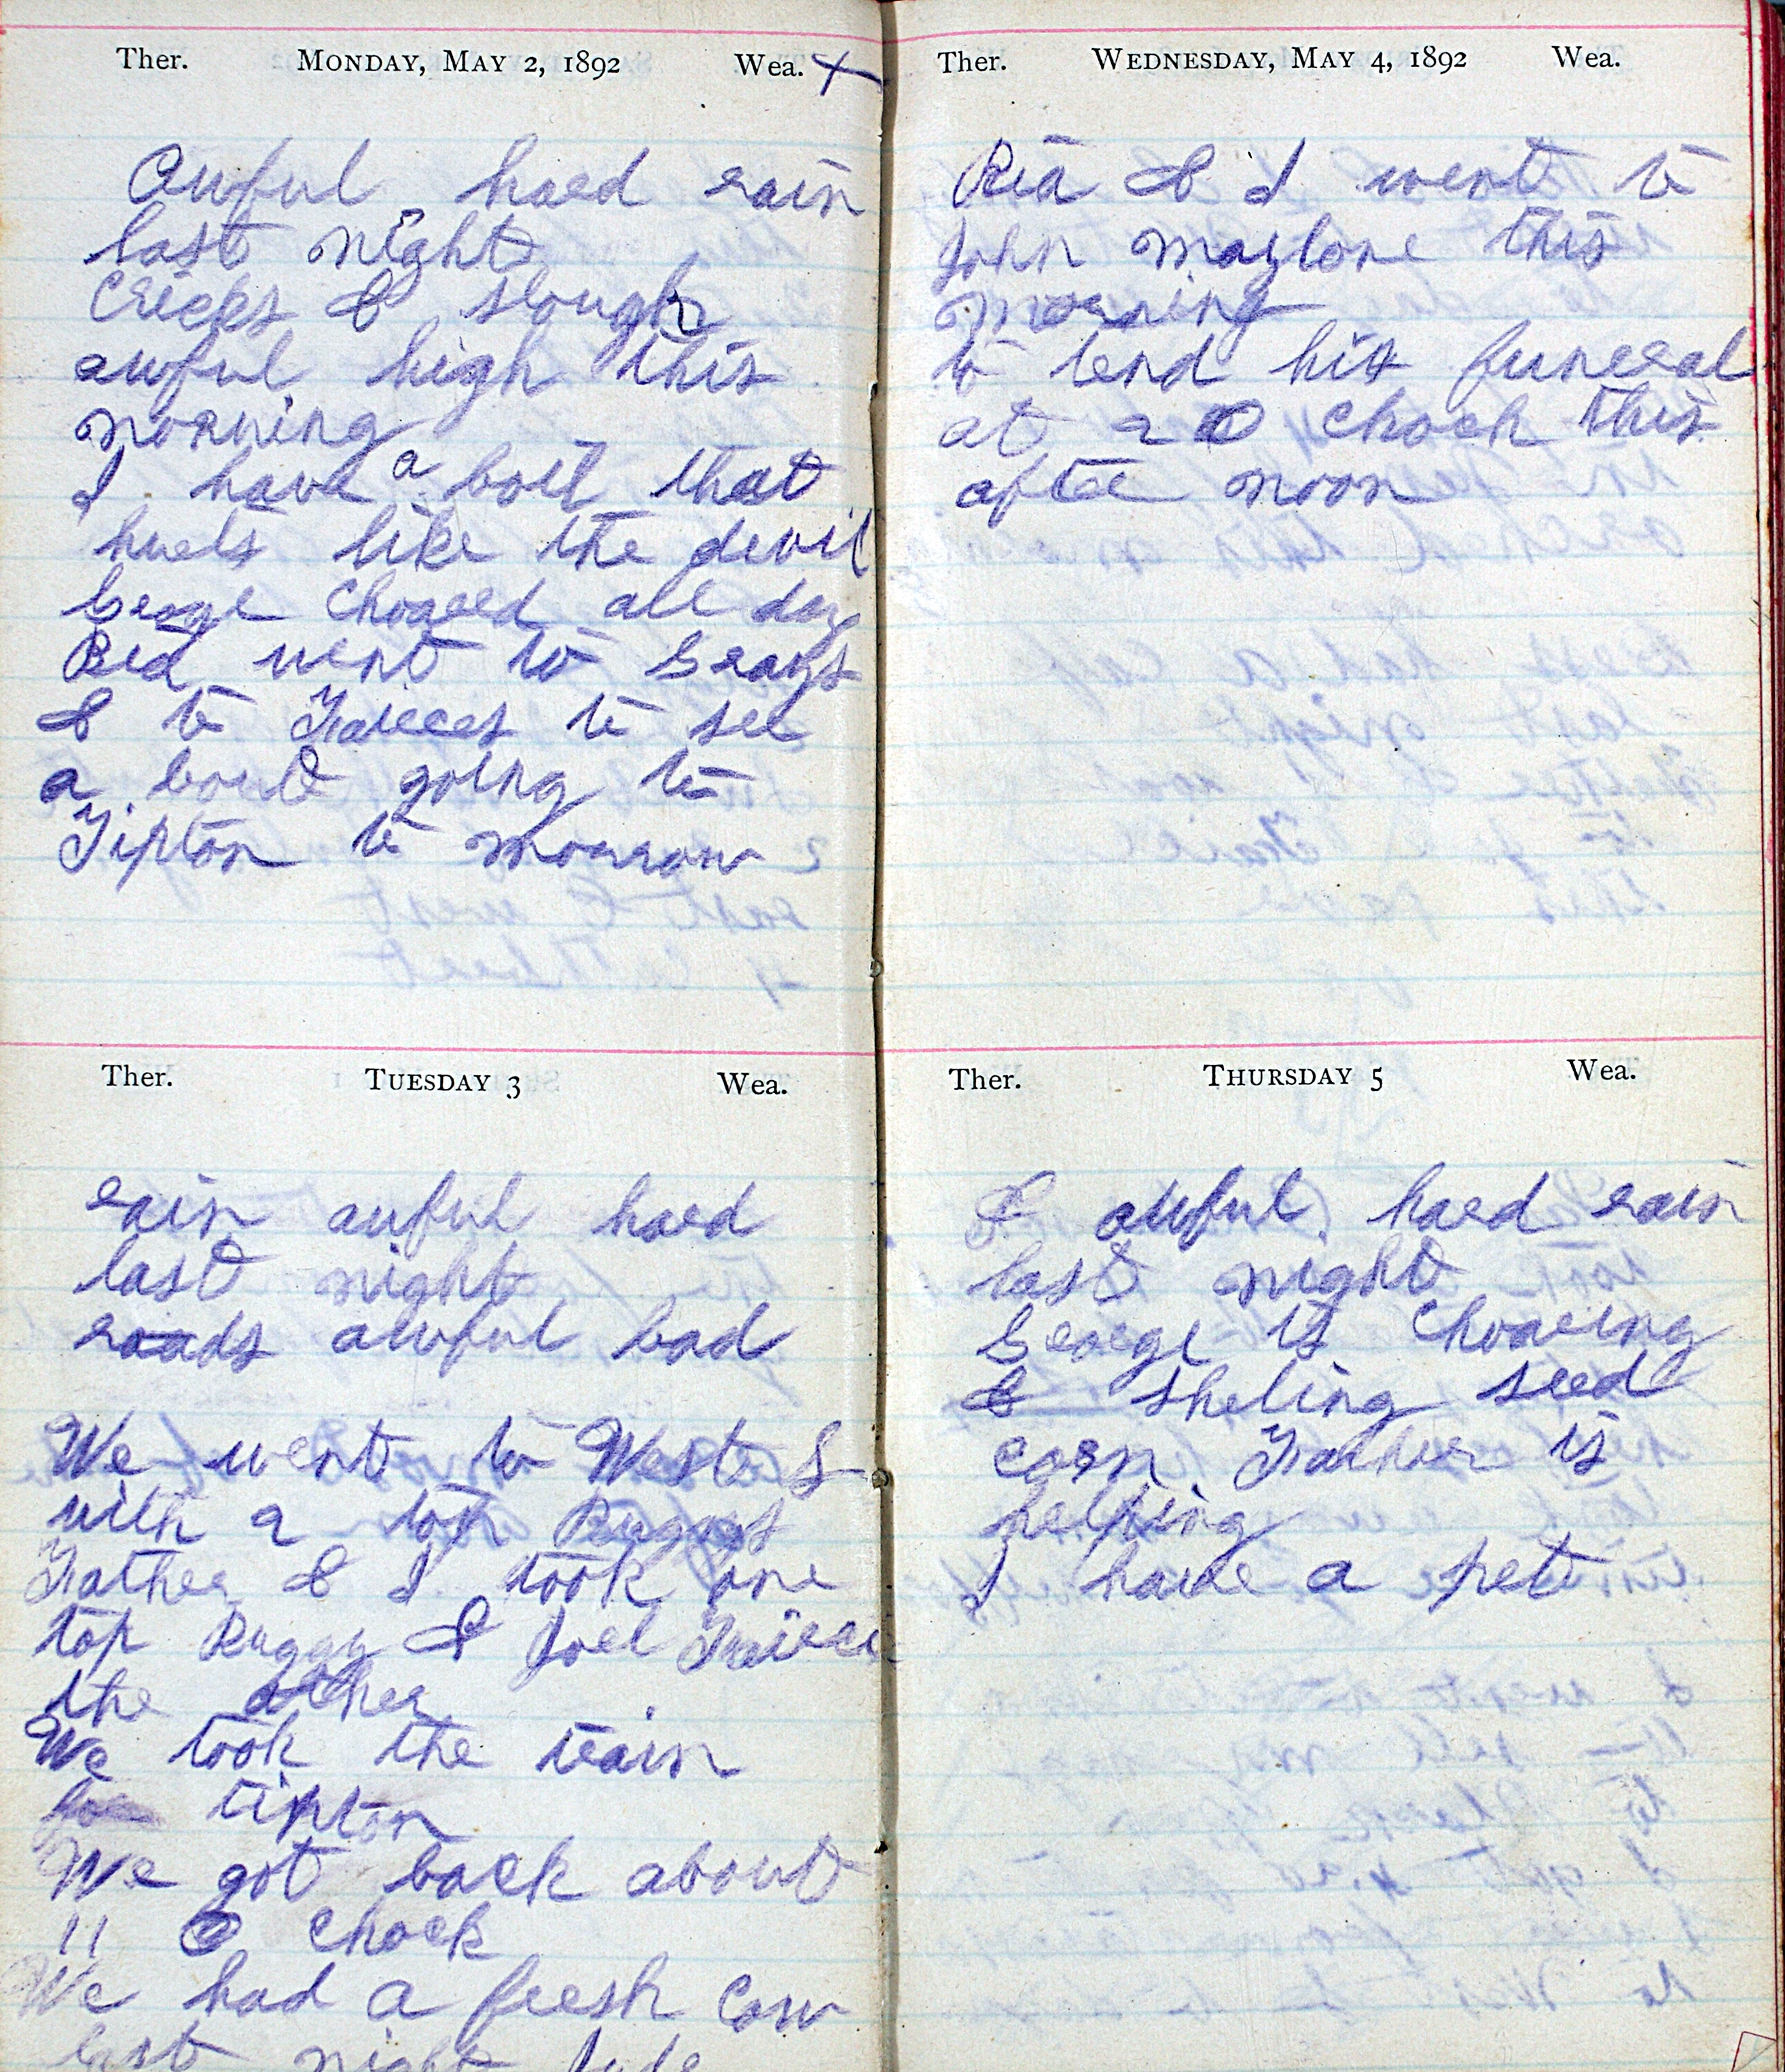 Ther. MONDAY, MAY 2, 1892 Wea. X
Awful hard rain
last night
Cricks & slough
awful high this
morning
I have a boil that
hurts like the devil
George Choared all day
Bea went to Grays
& to Frieces to see
a bout going to
Tipton to morrow
Ther. TUESDAY 3 Wea.
rain awful hard
last night
roads awful bad
We went to West
with 2 top Buggys
Father & I took one
top Buggy & Joel
the other
We took the train
for tipton
We got back about
11 O Chock
We had a fresh Cow
last night
Ther. WEDNESDAY, MAY 4, 1892 Wea.
Bea & I went to
John this
morning
to tend his funeral
at 2 O Chock this
after noon
Ther. THURSDAY 5 Wea.
& awful hard rain
last night
George is Choaring
& sheling seed
corn Father is
helping
I have a pet